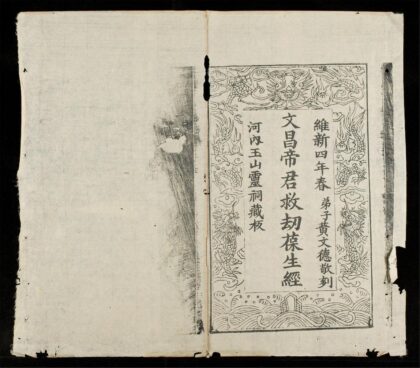 維新四年春 弟子黄文德敬刻
文昌帝君救劫葆生經
河内玉山靈祠藏板